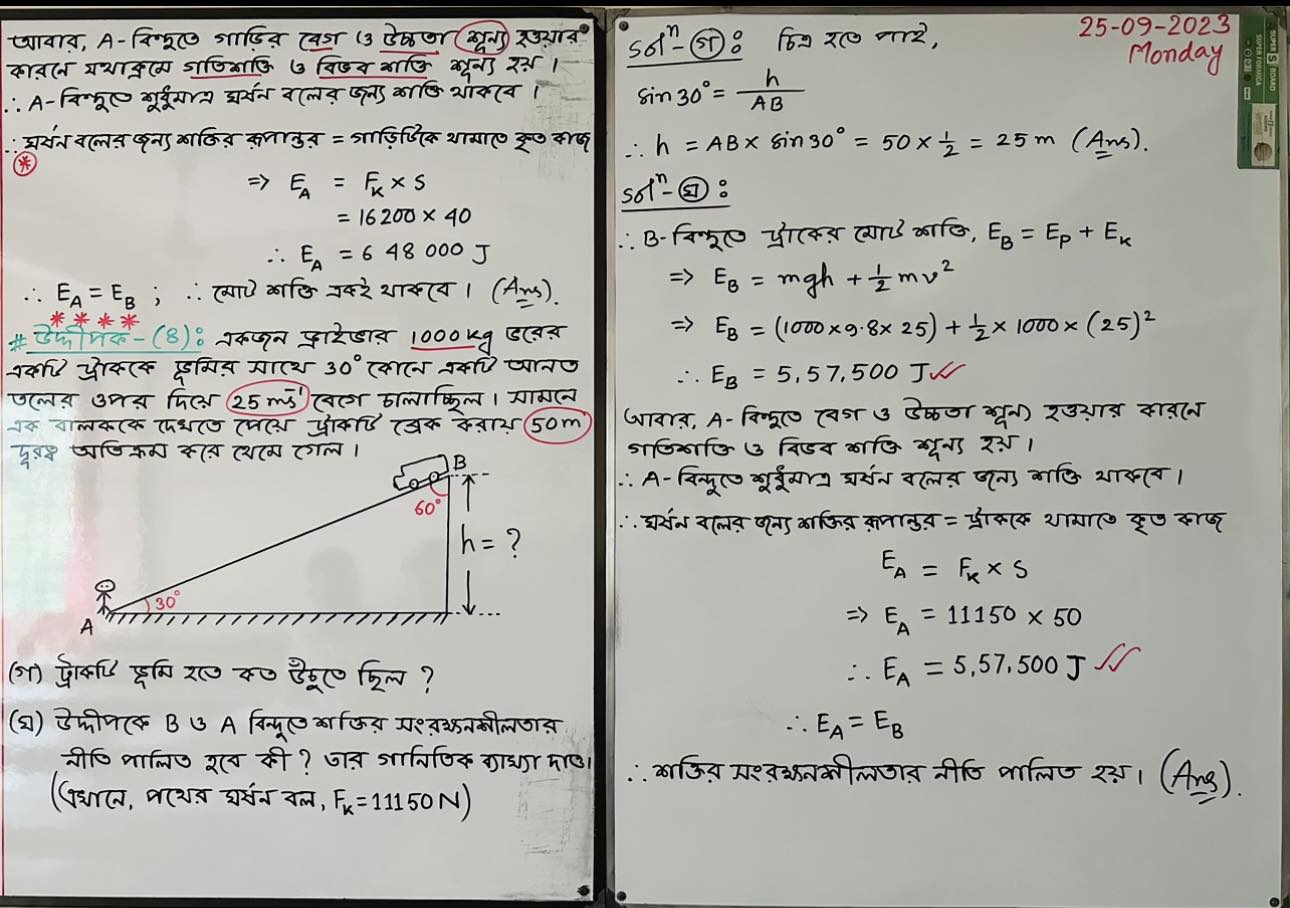 আবার, A-বিন্দুতে গাড়ির বেগ ও উচ্চতা শূন্য হওয়ার
কারনে যথাক্রমে গতিশক্তি ও বিভব শক্তি শূন্য হয়।
∴ A-বিন্দুতে শুধুমাত্র ঘর্ষন বলের জন্য শক্তি থাকবে।
∴ ঘর্ষন বলের জন্য শক্তির রূপান্তর = গাড়িটিকে থামাতে কৃত কাজ
*
=> E_A = F_K × S
= 16200 × 40
∴ E_A = 648000 J
∴ E_A = E_B ; ∴ মোট শক্তি একই থাকবে। (Ans).
* * * *
# উদ্দীপক-(8): একজন ড্রাইভার 1000kg ভরের
একটি ট্রাককে ভূমির সাথে 30° কোনে একটি আনত
তলের ওপর দিয়ে 25 ms⁻¹ বেগে চালাচ্ছিল। সামনে
এক বালককে দেখতে পেয়ে ট্রাকটি ব্রেক করায় 50m
দূরত্ব অতিক্রম করে থেমে গেল।
B
60°
h = ?
30°
A
(গ) ট্রাকটি ভূমি হতে কত উঁচুতে ছিল ?
(ঘ) উদ্দীপকে B ও A বিন্দুতে শক্তির সংরক্ষনশীলতার
নীতি পালিত হবে কী ? তার গানিতিক ব্যাখ্যা দাও।
(এখানে, পথের ঘর্ষন বল, F_K = 11150 N)
25-09-2023
Monday
Solⁿ-(গ): চিত্র হতে পাই,
sin30° = h/AB
∴ h = AB × sin30° = 50 × ½ = 25 m (Ans).
Solⁿ-(ঘ):
∴ B-বিন্দুতে ট্রাকের মোট শক্তি, E_B = E_P + E_K
=> E_B = mgh + ½ mv²
=> E_B = (1000×9.8×25) + ½ × 1000 × (25)²
∴ E_B = 5,57,500 J ✓✓
আবার, A-বিন্দুতে বেগ ও উচ্চতা শূন্য হওয়ার কারনে
গতিশক্তি ও বিভব শক্তি শূন্য হয়।
∴ A-বিন্দুতে শুধুমাত্র ঘর্ষন বলের জন্য শক্তি থাকবে।
∴ ঘর্ষন বলের জন্য শক্তির রূপান্তর = ট্রাককে থামাতে কৃত কাজ
E_A = F_K × S
=> E_A = 11150 × 50
∴ E_A = 5,57,500 J ✓✓
∴ E_A = E_B
∴ শক্তির সংরক্ষনশীলতার নীতি পালিত হয়। (Ans).
SUPER S BOARD
SUPER FORMICA